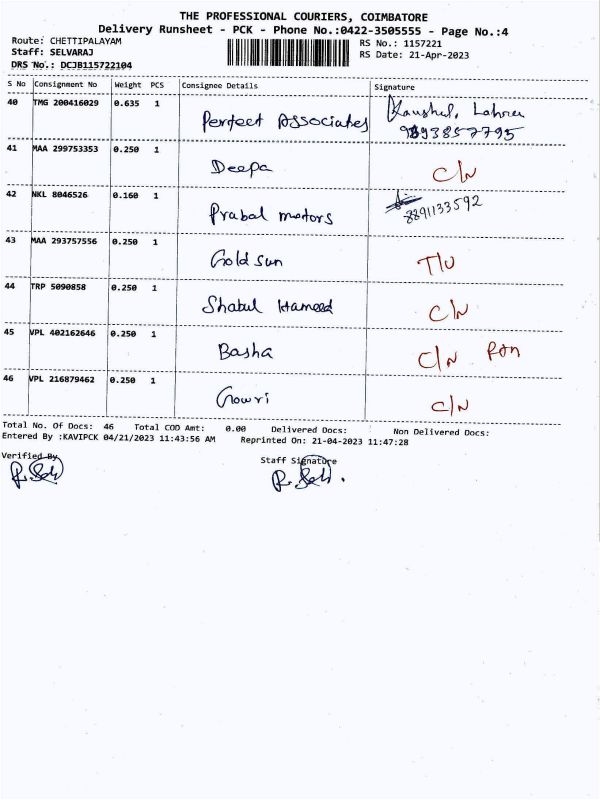 THE PROFESSIONAL COURIERS, COIMBATORE
Delivery Runsheet - PCK - Phone No.:0422-3505555 - Page No.:4
Route: CHETTIPALAYAM RS No.: 1157221
Staff: SELVARAJ RS Date: 21-Apr-2023
DRS No.: DCJB115722104
S No Consignment No Weight PCS Consignee Details Signature
40 TMG 200416029 0.635 1 Perfect Associates Kaushul,
41 MAA 299753353 0.250 1 Deepa C/N
42 NKL 8046526 0.160 1 Prabal motors 8891133592
43 MAA 293757556 0.250 1 Gold sun T/U
44 TRP 5090858 0.250 1 Shabul Hameed C/N
45 VPL 402162646 0.250 1 Basha C/N
46 VPL 216879462 0.250 1 Gowri C/N
Total No. Of Docs: 46 Total COD Amt: 0.00 Delivered Docs: Non Delivered Docs:
Entered By :KAVIPCK 04/21/2023 11:43:56 AM Reprinted On: 21-04-2023 11:47:28
Verified By Staff Signature